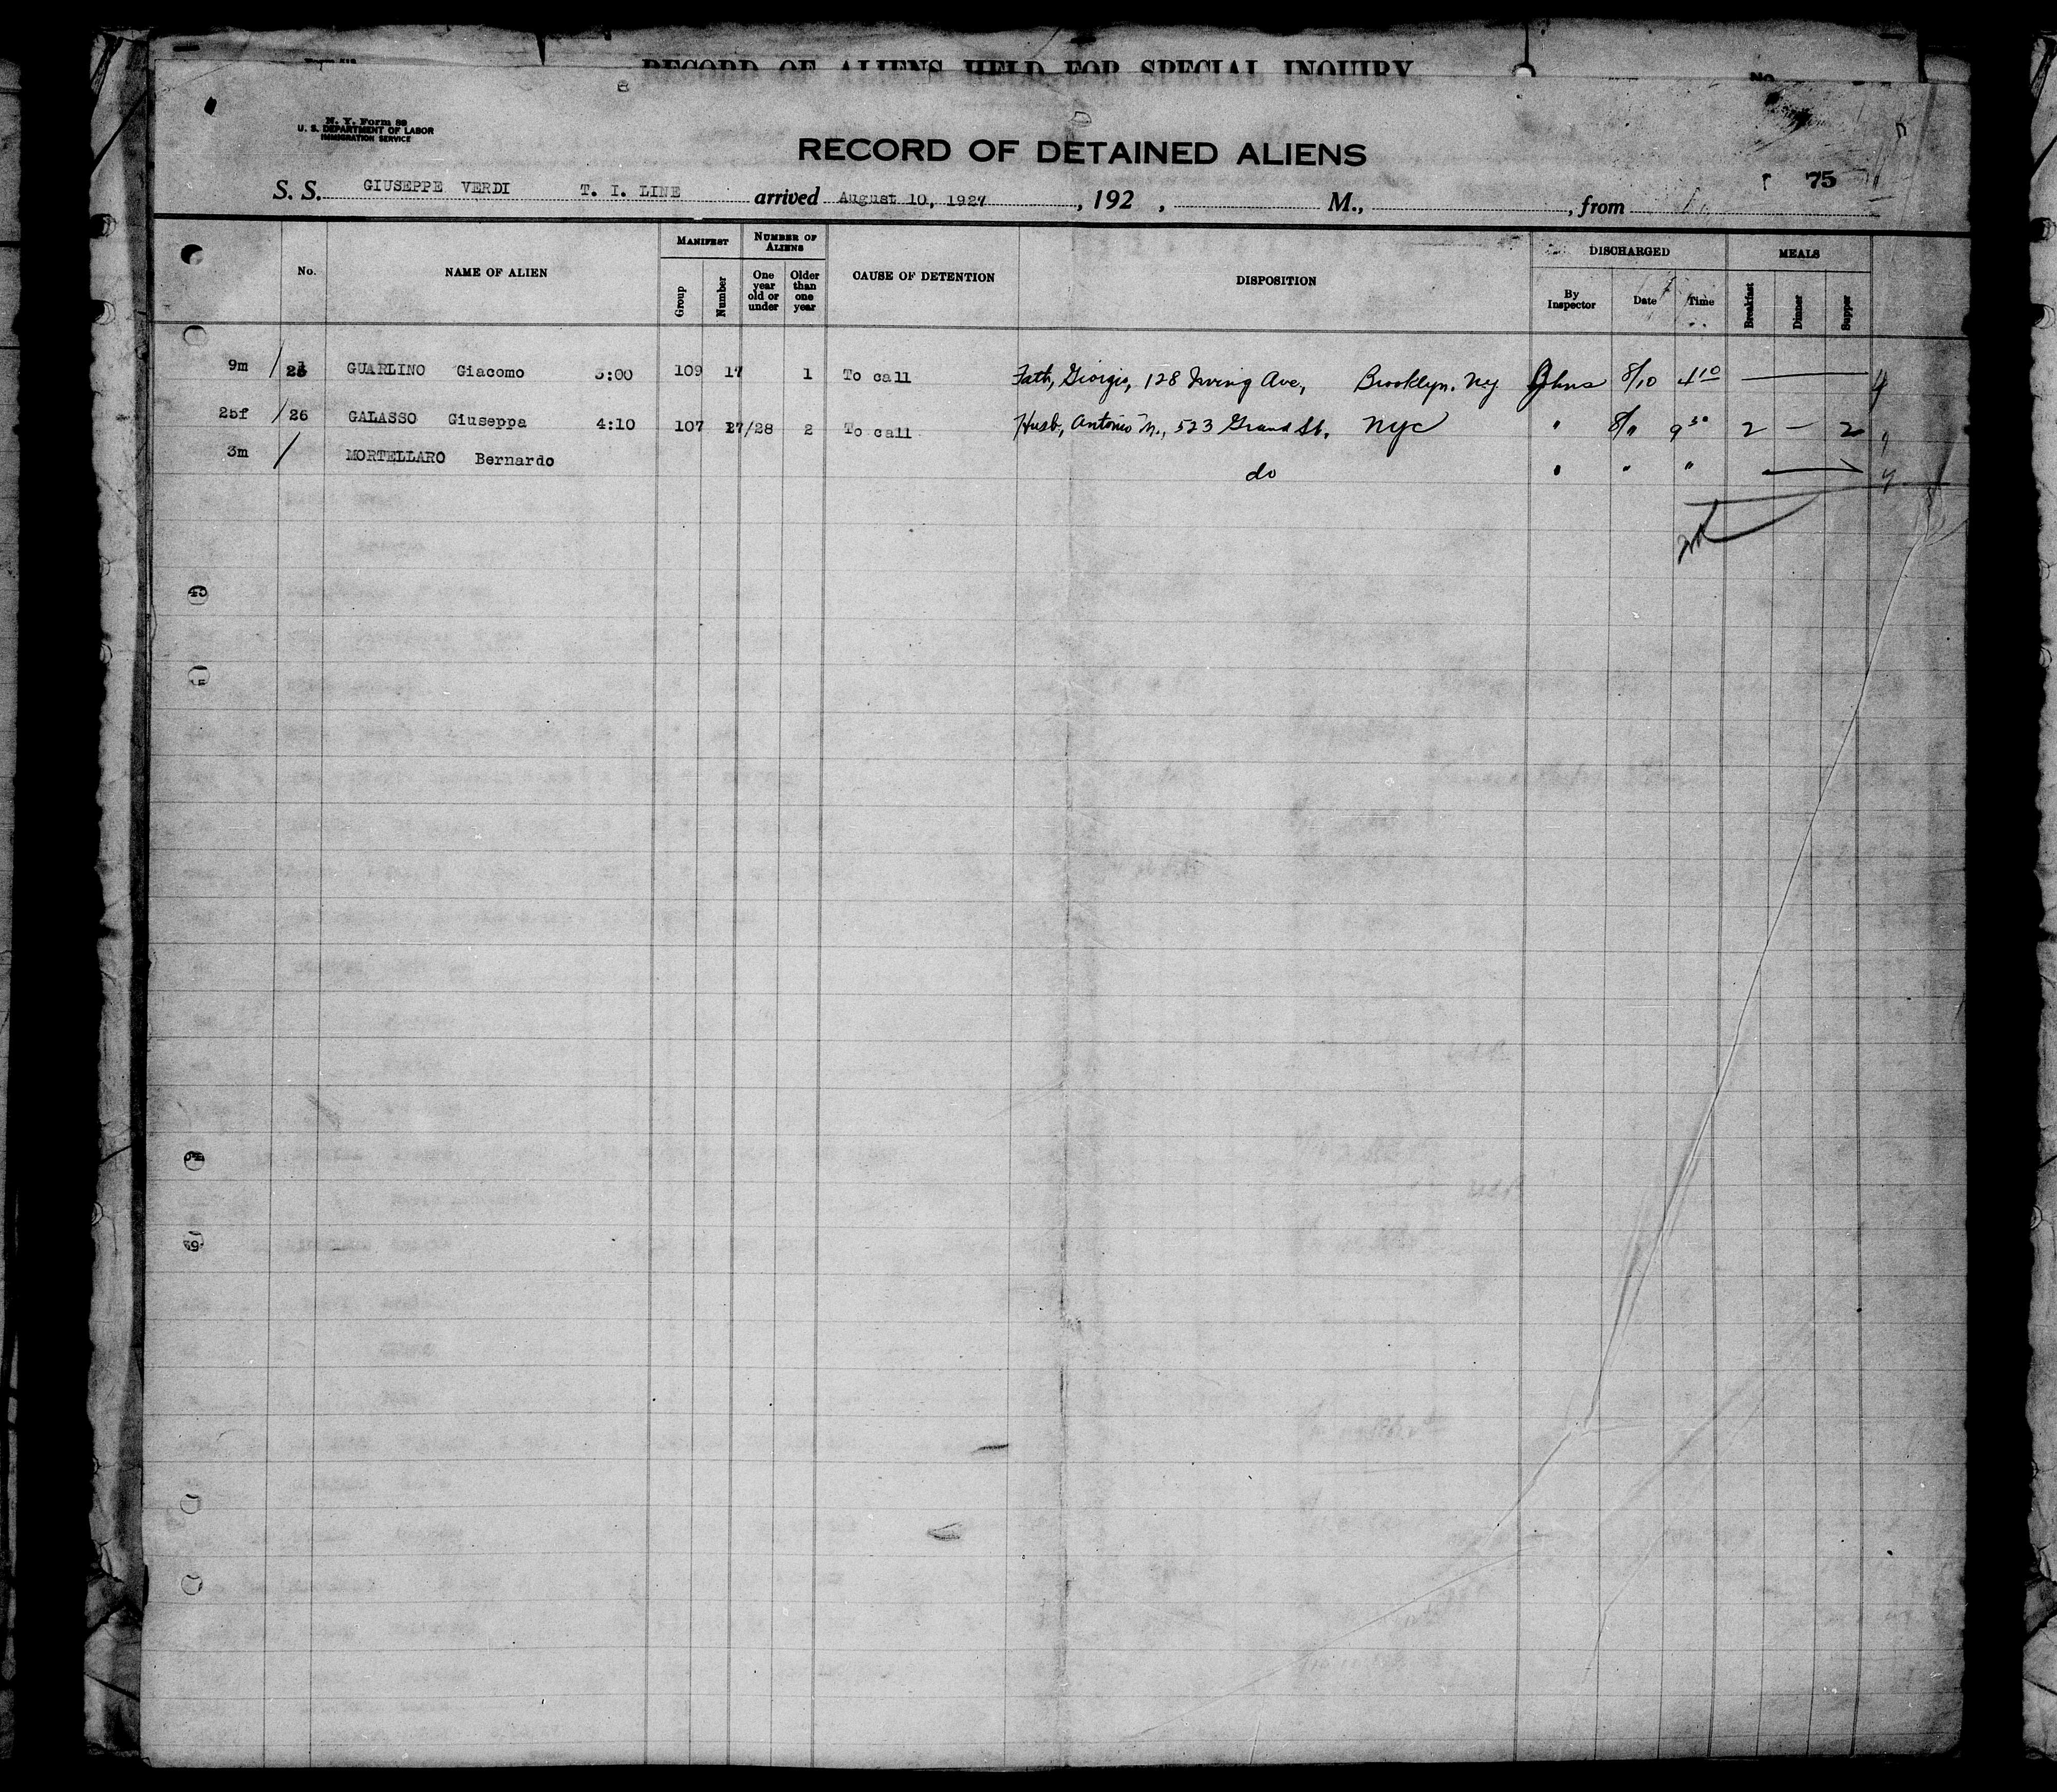 RECORD OF ALIENS HELD FOR SPECIAL INQUIRY
No.
N. Y. Form 89
U. S. DEPARTMENT OF LABOR
IMMIGRATION SERVICE
RECORD OF DETAINED ALIENS
75
S. S. GIUSEPPE VERDI T. I. LINE arrived August 10, 1927, 192 , M., , from
No. NAME OF ALIEN MANIFEST NUMBER OF ALIENS CAUSE OF DETENTION DISPOSITION DISCHARGED MEALS
Group Number One year old or under Older than one year By Inspector Date Time Breakfast Dinner Supper
9m / GUARLINO Giacomo 109 17 1 To call Fath, Giorgio, 128 Irving Ave, Brooklyn, NY 8/10 4 10
25f / 26 GALASSO Giuseppa 4:10 107 27/28 2 To call Husb, Antonio M., 523 Grand St, NYC " 8/11 9 30 2 — 2
3m / MORTELLARO Bernardo do " " "